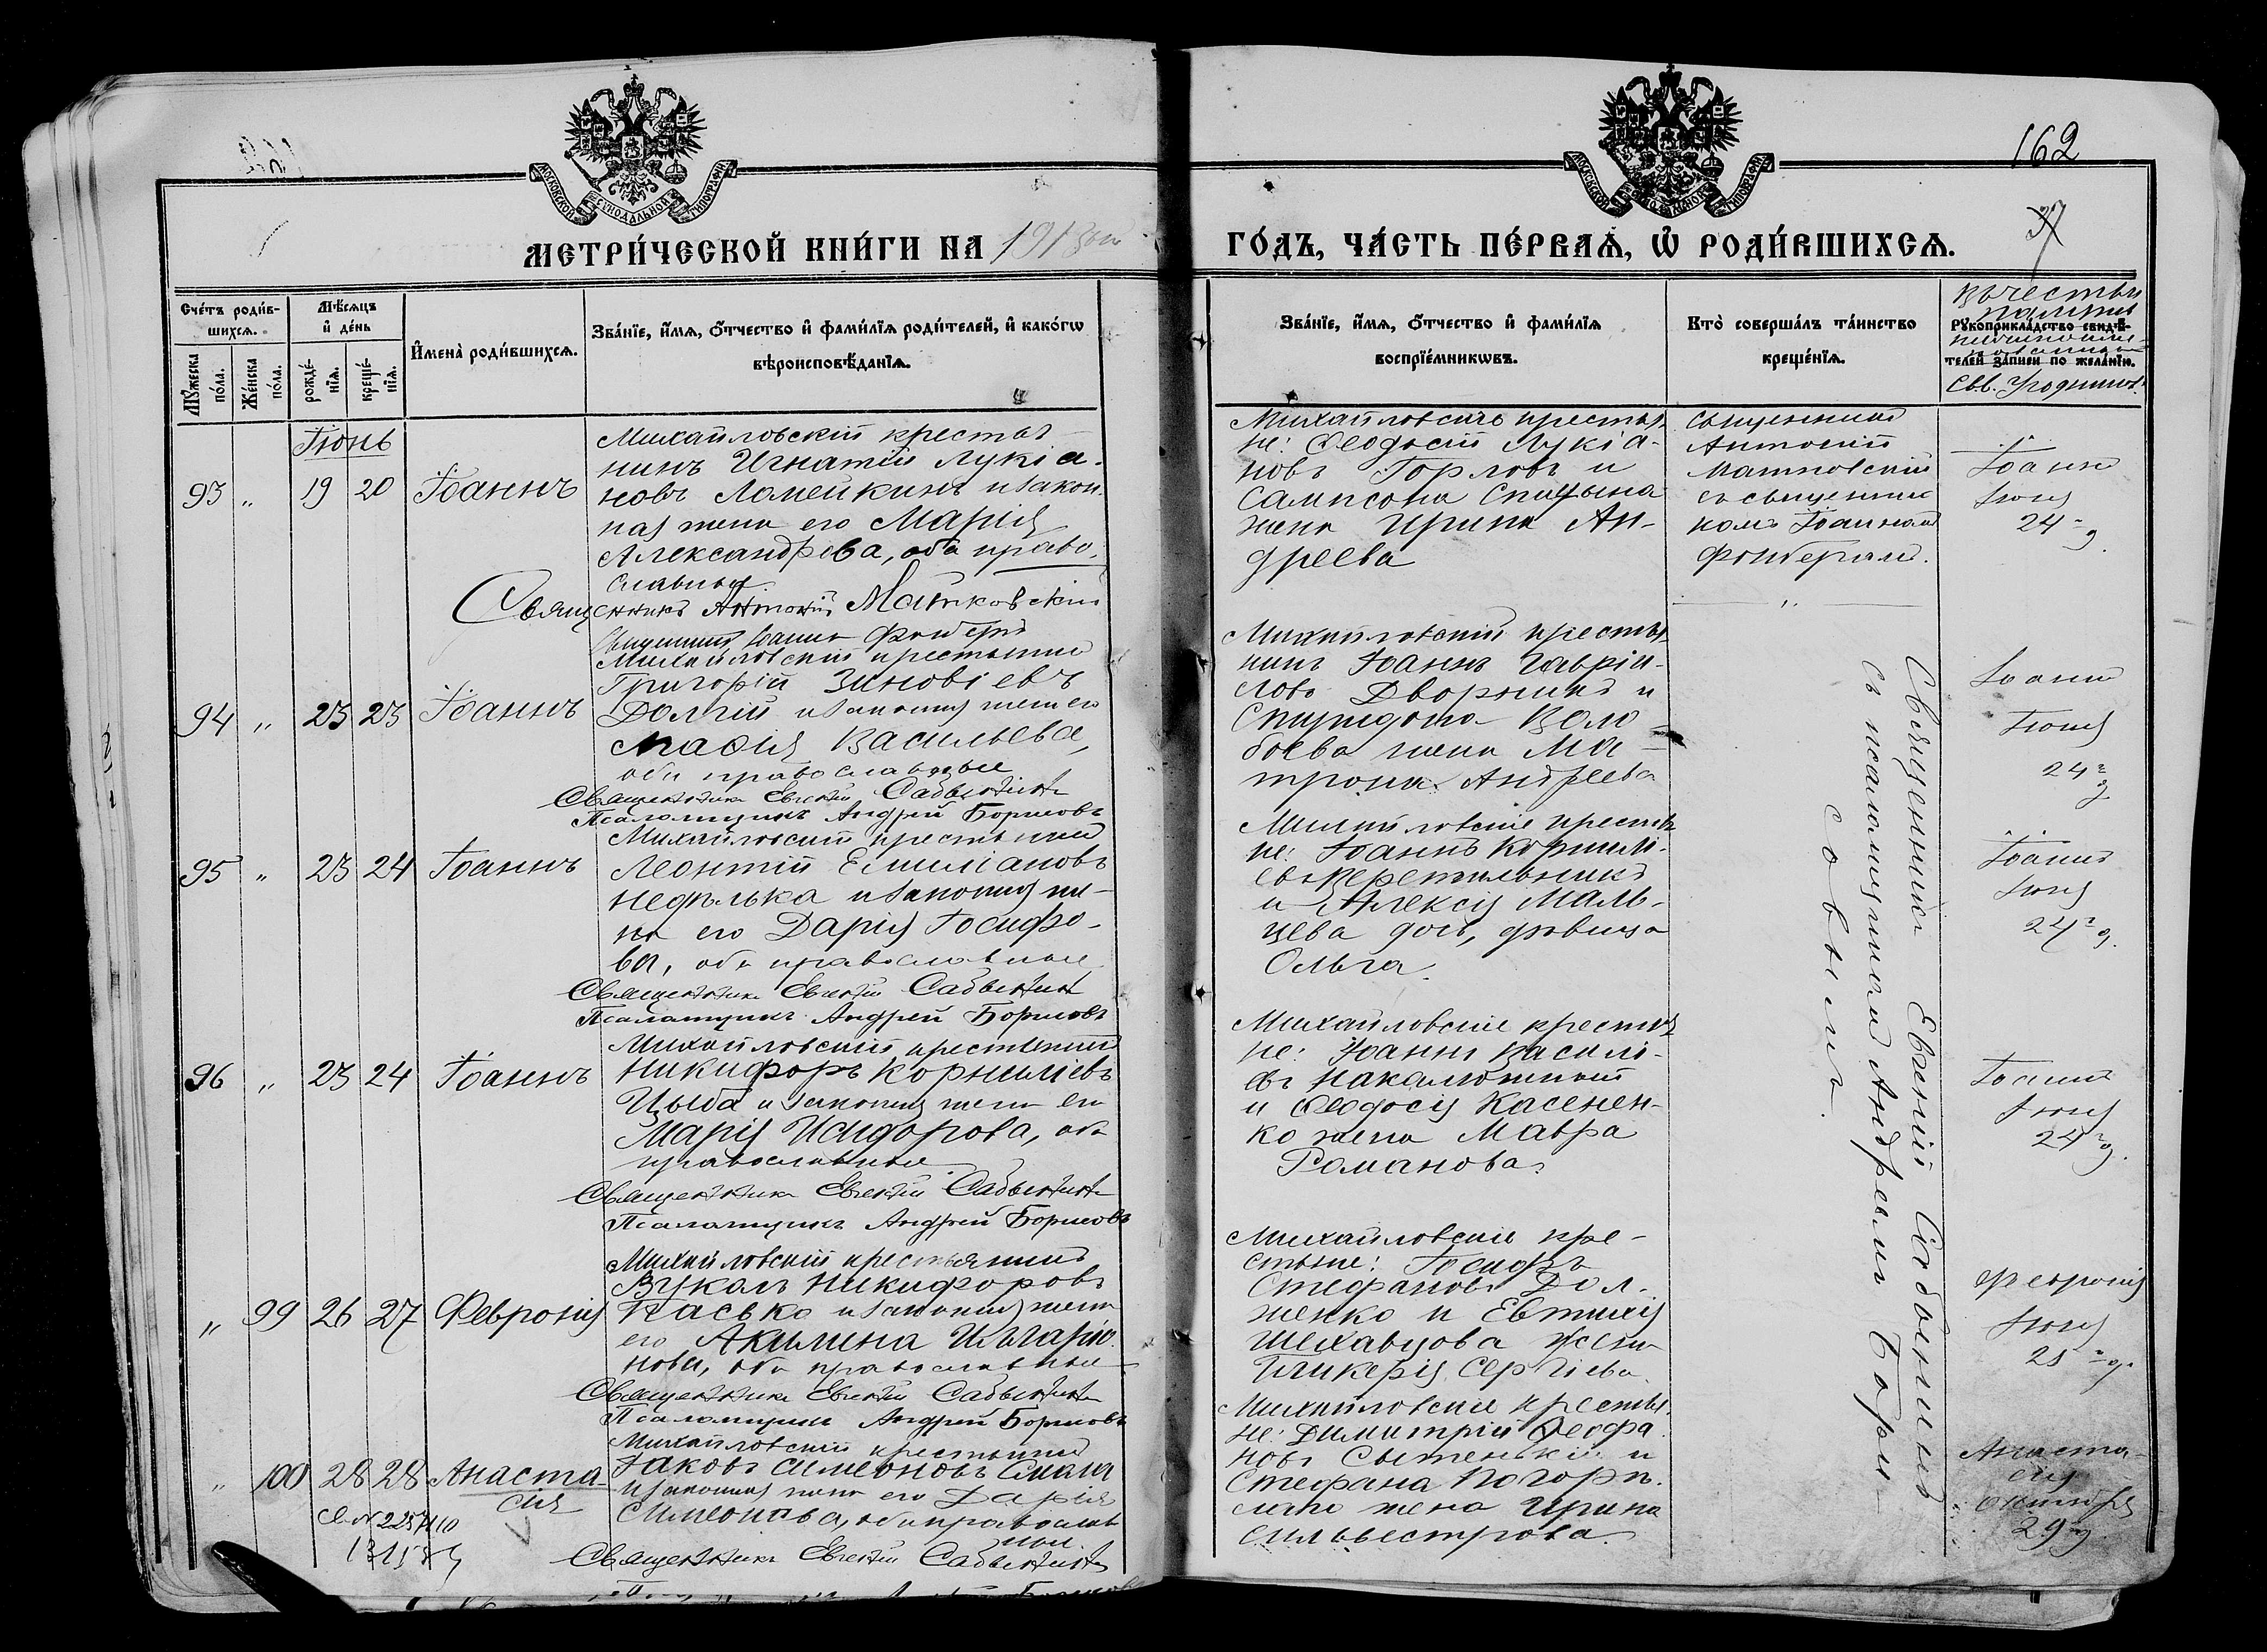 162
37
МОСКОВСКОЙ СѴНОДАЛЬНОЙ ТИПОГРАФІИ
МОСКОВСКОЙ СѴНОДАЛЬНОЙ ТИПОГРАФІИ
МЕТРИ́ЧЕСКОЙ КНИ́ГИ НА 1913й
ГО́ДЪ, ЧА́СТЬ ПЕ́РВАѦ, Ѡ РОДИ́ВШИХСѦ.
Сче́тъ роди́вшихсѧ.
Мꙋжеска по́ла.
Же́нска по́ла.
Мѣ́сѧцъ и де́нь
рожде́нїѧ.
креще́нїѧ.
Имена̀ роди́вшихсѧ.
Зва́нїе, и́мѧ, о́тчество и фами́лїѧ роди́телей, и како́гѡ
вѣроисповѣ́данїѧ.
Зва́нїе, и́мѧ, о́тчество и фами́лїѧ
воспрїе́мникѡвъ.
Кто̀ соверша́лъ та́инство
креще́нїѧ.
Въ честь и
память
Рꙋкоприкла́дство свидѣ́-
телей за́писи по жела́нїю.
Іюнь
93 " 19 20 Іоаннъ
Михайловскій крестья-
нинъ Игнатій Лукіа-
новъ Ломейкинъ и закон-
ная жена его Марія
Александрова, оба право-
славные
Священникъ Антоній Матковскій
Священникъ Іоаннъ
Михайловскіе крестья-
не: Ѳеодосій Лукіа-
новъ Горловъ и
Сампсона Спицына
жена Ирина Ан-
дреева
Священникъ
Антоній
Матковскій
съ священни-
комъ Іоанномъ
Іоанна
Іюня
24 г д.
94 " 23 23 Іоаннъ
Михайловскій крестьянинъ
Григорій Зиновіевъ
Долгій и законная жена его
Марія Васильева,
оба православные
Священникъ Евгеній Сабынинъ
Псаломщикъ Андрей Борисовъ
Михайловскій крестья-
нинъ Іоаннъ Гавріи-
ловъ Дворникъ и
Спиридона Воло-
боева жена Ма-
трона Андреева
Іоанна
Іюня
24 г д
95 " 23 24 Іоаннъ
Михайловскій крестьянинъ
Леонтій Емиліановъ
Недѣлька и законная же-
на его Дарія Іосифо-
ва, оба православные
Священникъ Евгеній Сабынинъ
Псаломщикъ Андрей Борисовъ
Михайловскіе крестья-
не: Іоаннъ Корнилі-
евъ Веретильникъ
и Алексія Маль-
цева дочь, дѣвица
Ольга.
Іоанна
Іюня
24 г д.
96 " 23 24 Іоаннъ
Михайловскій крестьянинъ
Никифоръ Корниліевъ
Цыба и законная жена его
Марія Исидорова, оба
православные
Священникъ Евгеній Сабынинъ
Псаломщикъ Андрей Борисовъ
Михайловскіе крестья-
не: Іоаннъ Василі-
евъ Накалюжный
и Ѳеодосія Касенен-
ко жена Мавра
Романова.
Іоанна
Іюня
24 г д.
" 99 26 27 Февронія
Михайловскій крестьянинъ
Вуколъ Никифоровъ
Пасько и законная жена
его Акилина Иларіо-
нова, оба православные
Священникъ Евгеній Сабынинъ
Псаломщикъ Андрей Борисовъ
Михайловскіе кре-
стьяне: Іосифъ
Стефановъ Дол-
женко и Евтихія
Шехавцова жена
Гликерія Сергіева.
Февроніи
Іюня
25 г д.
" 100 28 28 Анаста-
сія
Михайловскій крестьянинъ
Іаковъ Симеоновъ
и законная жена его Дарія
Симеонова, оба православ-
ные
Священникъ Евгеній Сабынинъ
Михайловскіе крестья-
не: Димитрій Ѳеофа-
новъ Сытенькій и
Стефана Погорѣ-
лаго жена Ирина
Сильвестрова.
Анаста-
сіи
Октября
29 д.
Священникъ Евгеній Сабынинъ
съ псаломщикомъ Андреемъ Бори-
совымъ.